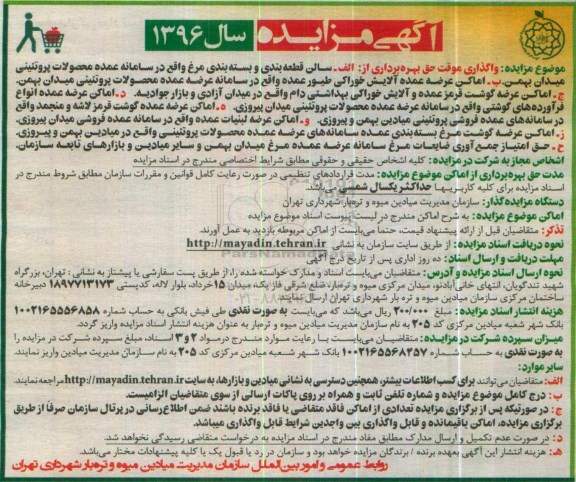 آگهی مزایده سال ۱۳۹۶
موضوع مزایده: واگذاری موقت حق بهره‌برداری از: الف ـ سالن قطعه‌بندی و بسته‌بندی مرغ واقع در سامانه عمده محصولات پروتئینی
میدان بهمن. ب ـ اماکن عرضه عمده آلایش خوراکی طیور عمده واقع در سامانه عرضه عمده محصولات پروتئینی میدان بهمن.
ج ـ اماکن عرضه گوشت قرمز عمده و آلایش خوراکی بهداشتی دام واقع در میدان آزادی و بازار جوادیه. د ـ اماکن عرضه عمده انواع
فرآورده‌های گوشتی واقع در سامانه عرضه عمده محصولات پروتئینی میدان پیروزی. ه ـ اماکن عرضه عمده گوشت قرمز لاشه و منجمد واقع
در سامانه‌های عمده فروشی پروتئینی میادین بهمن و پیروزی. و ـ اماکن عرضه لبنیات عمده واقع در سامانه عمده فروشی میدان پیروزی.
ز ـ اماکن عرضه گوشت مرغ بسته‌بندی عمده سامانه‌های عرضه عمده محصولات پروتئینی واقع در میادین بهمن و پیروزی.
ح ـ حق امتیاز جمع‌آوری ضایعات مرغ سامانه عرضه عمده مرغ میدان بهمن و سایر میادین و بازارهای تابعه سازمان.
اشخاص مجاز به شرکت در مزایده: کلیه اشخاص حقیقی و حقوقی مطابق شرایط اختصاصی مندرج در اسناد مزایده
مدت حق بهره‌برداری از اماکن مزایده: مدت قراردادهای تنظیمی در صورت رعایت کامل قوانین و مقررات سازمان مطابق شروط مندرج در
اسناد مزایده برای کلیه کاربریها حداکثر یکسال شمسی می‌باشد.
دستگاه مزایده‌گذار: سازمان مدیریت میادین میوه و تره‌بار شهرداری تهران
اماکن موضوع مزایده: به شرح اماکن مندرج در لیست پیوست اسناد موضوع مزایده
تذکر: متقاضیان قبل از ارائه پیشنهاد قیمت، حتما می‌بایست از اماکن مربوطه بازدید به عمل آورند.
نحوه دریافت اسناد مزایده: از طریق سایت سازمان به نشانی http://mayadin.tehran.ir
مهلت دریافت و ارسال اسناد: ده روز اداری پس از تاریخ درج آگهی
نحوه ارسال اسناد مزایده و آدرس: متقاضیان می‌بایست اسناد و مدارک خواسته شده را، از طریق پست سفارشی یا پیشتاز به نشانی: تهران، بزرگراه
شهید تندگویان، انتهای خانی‌آبادنو، میدان مرکزی میوه و تره‌بار، ضلع شرقی فاز یک، میدان ۱۵ خرداد، بلوار لاله، کدپستی ۱۸۹۷۷۱۳۱۷۳ دبیرخانه
ساختمان مرکزی سازمان میادین میوه و تره بار شهرداری تهران ارسال نمایند.
هزینه انتشار اسناد مزایده: مبلغ ۲۰۰/۰۰۰ ریال می‌باشد که می‌بایست به صورت نقدی طی فیش بانکی به حساب شماره ۱۰۰۲۱۶۵۵۵۶۸۵۸
بانک شهر شعبه میادین مرکزی کد ۲۰۵ به نام سازمان مدیریت میادین میوه و تره‌بار به عنوان هزینه انتشار اسناد مزایده واریز گردد.
میزان سپرده شرکت در مزایده: متقاضیان می‌بایست با رعایت موارد مندرج درمواد ۲ و ۳ اسناد، مبلغ سپرده شرکت در مزایده را
به صورت نقدی به حساب شماره ۱۰۰۲۱۶۵۵۶۸۲۵۷ بانک شهر شعبه میادین مرکزی کد ۲۰۵ به نام سازمان مدیریت میادین واریز نمایند.
سایر موارد:
الف: متقاضیان می‌توانند برای کسب اطلاعات بیشتر، همچنین دسترسی به نشانی میادین و بازارها، به سایت http://mayadin.tehran.ir مراجعه نمایند.
ب: درج کامل موضوع مزایده و شماره تلفن ثابت و همراه بر روی پاکات ارسالی از سوی متقاضیان الزامیست.
ج: در صورتیکه پس از برگزاری مزایده تعدادی از اماکن فاقد متقاضی یا فاقد برنده باشند ضمن اطلاع‌رسانی در پرتال سازمان صرفاً از طریق
برگزاری مزایده، اماکن باقیمانده و قابل واگذاری بین واجدین شرایط قابل واگذاری میباشد.
د: در صورت عدم تکمیل و ارسال مدارک مطابق مفاد مندرج در اسناد مزایده به درخواست متقاضی رسیدگی نخواهد شد.
هـ: هزینه انتشار این آگهی بعهده برنده / برندگان مزایده خواهد بود و سازمان در رد یا قبول یک یا کلیه پیشنهادات مختار می‌باشد.
روابط عمومی و امور بین‌الملل سازمان مدیریت میادین میوه و تره‌بار شهرداری تهران